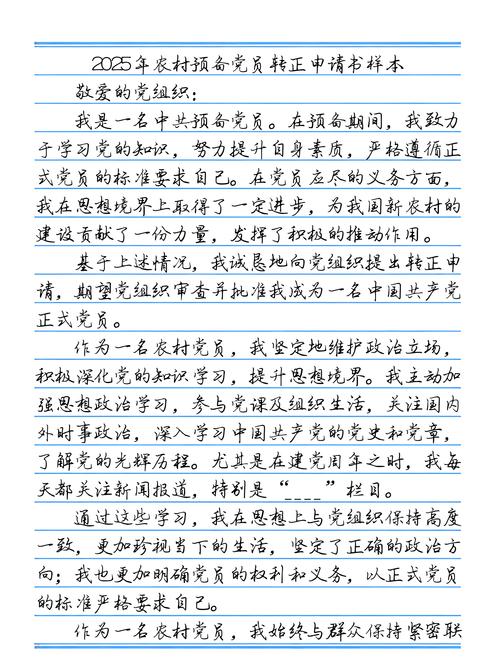 2025年农村预备党员转正申请书样本
敬爱的党组织：
我是一名中共预备党员。在预备期间，我致力
于学习党的知识，努力提升自身素质，严格遵循正
式党员的标准要求自己。在党员应尽的义务方面，
我在思想境界上取得了一定进步，为我国新农村的
建设贡献了一份力量，发挥了积极的推动作用。
基于上述情况，我诚恳地向党组织提出转正申
请，期望党组织审查并批准我成为一名中国共产党
正式党员。
作为一名农村党员，我坚定地维护政治立场，
积极深化党的知识学习，提升思想境界。我主动加
强思想政治学习，参与党课及组织生活，关注国内
外时事政治，深入学习中国共产党的党史和党章，
了解党的光辉历程。尤其是在建党周年之时，我每
天都关注新闻报道，特别是“____”栏目。
通过这些学习，我在思想上与党组织保持高度
一致，更加珍视当下的生活，坚定了正确的政治方
向；我也更加明确党员的权利和义务，以正式党员
的标准严格要求自己。
作为一名农村党员，我始终与群众保持紧密联